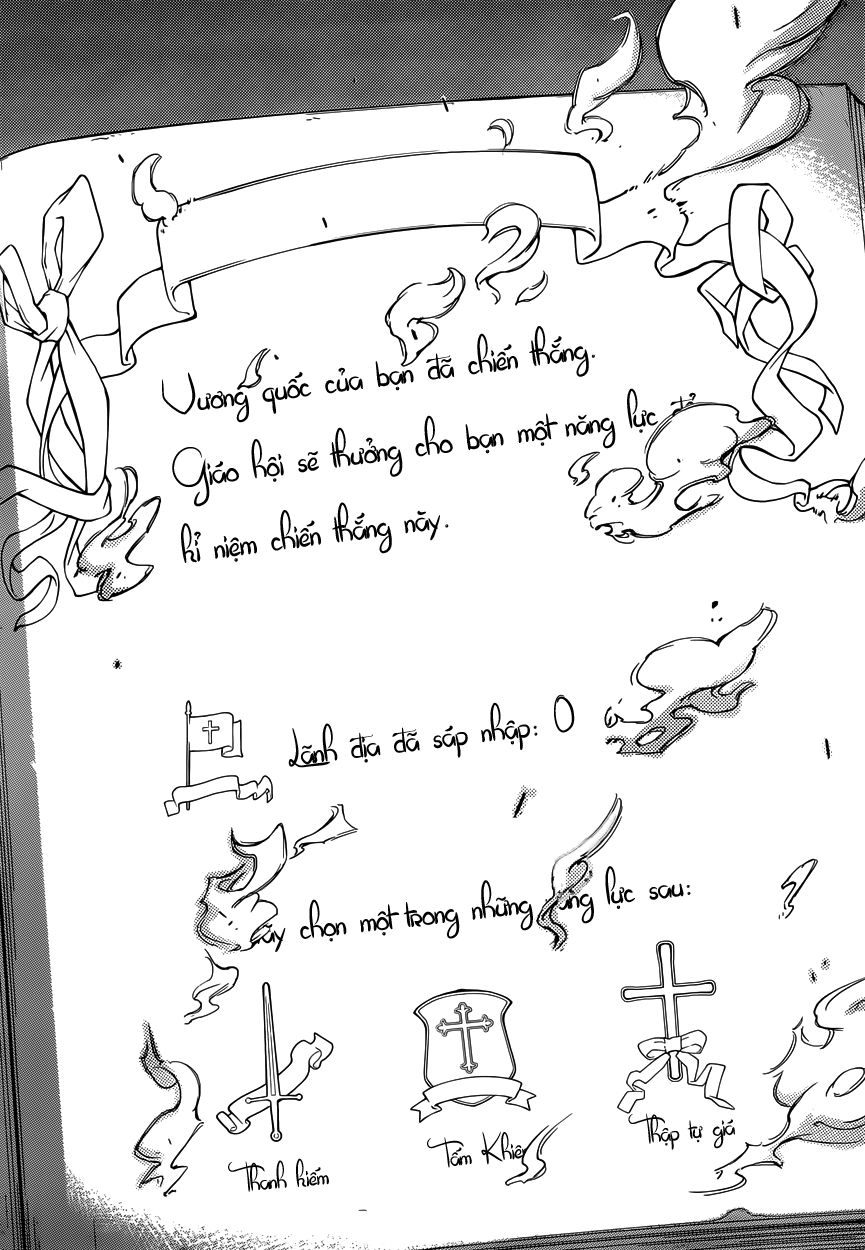 Vương quốc của bạn đã chiến thắng.
Giáo hội sẽ thưởng cho bạn một năng lực để
kỉ niệm chiến thắng này.
Lãnh địa đã sáp nhập: 0
Hãy chọn một trong những năng lực sau:
Thanh kiếm
Tấm Khiên
Thập tự giá